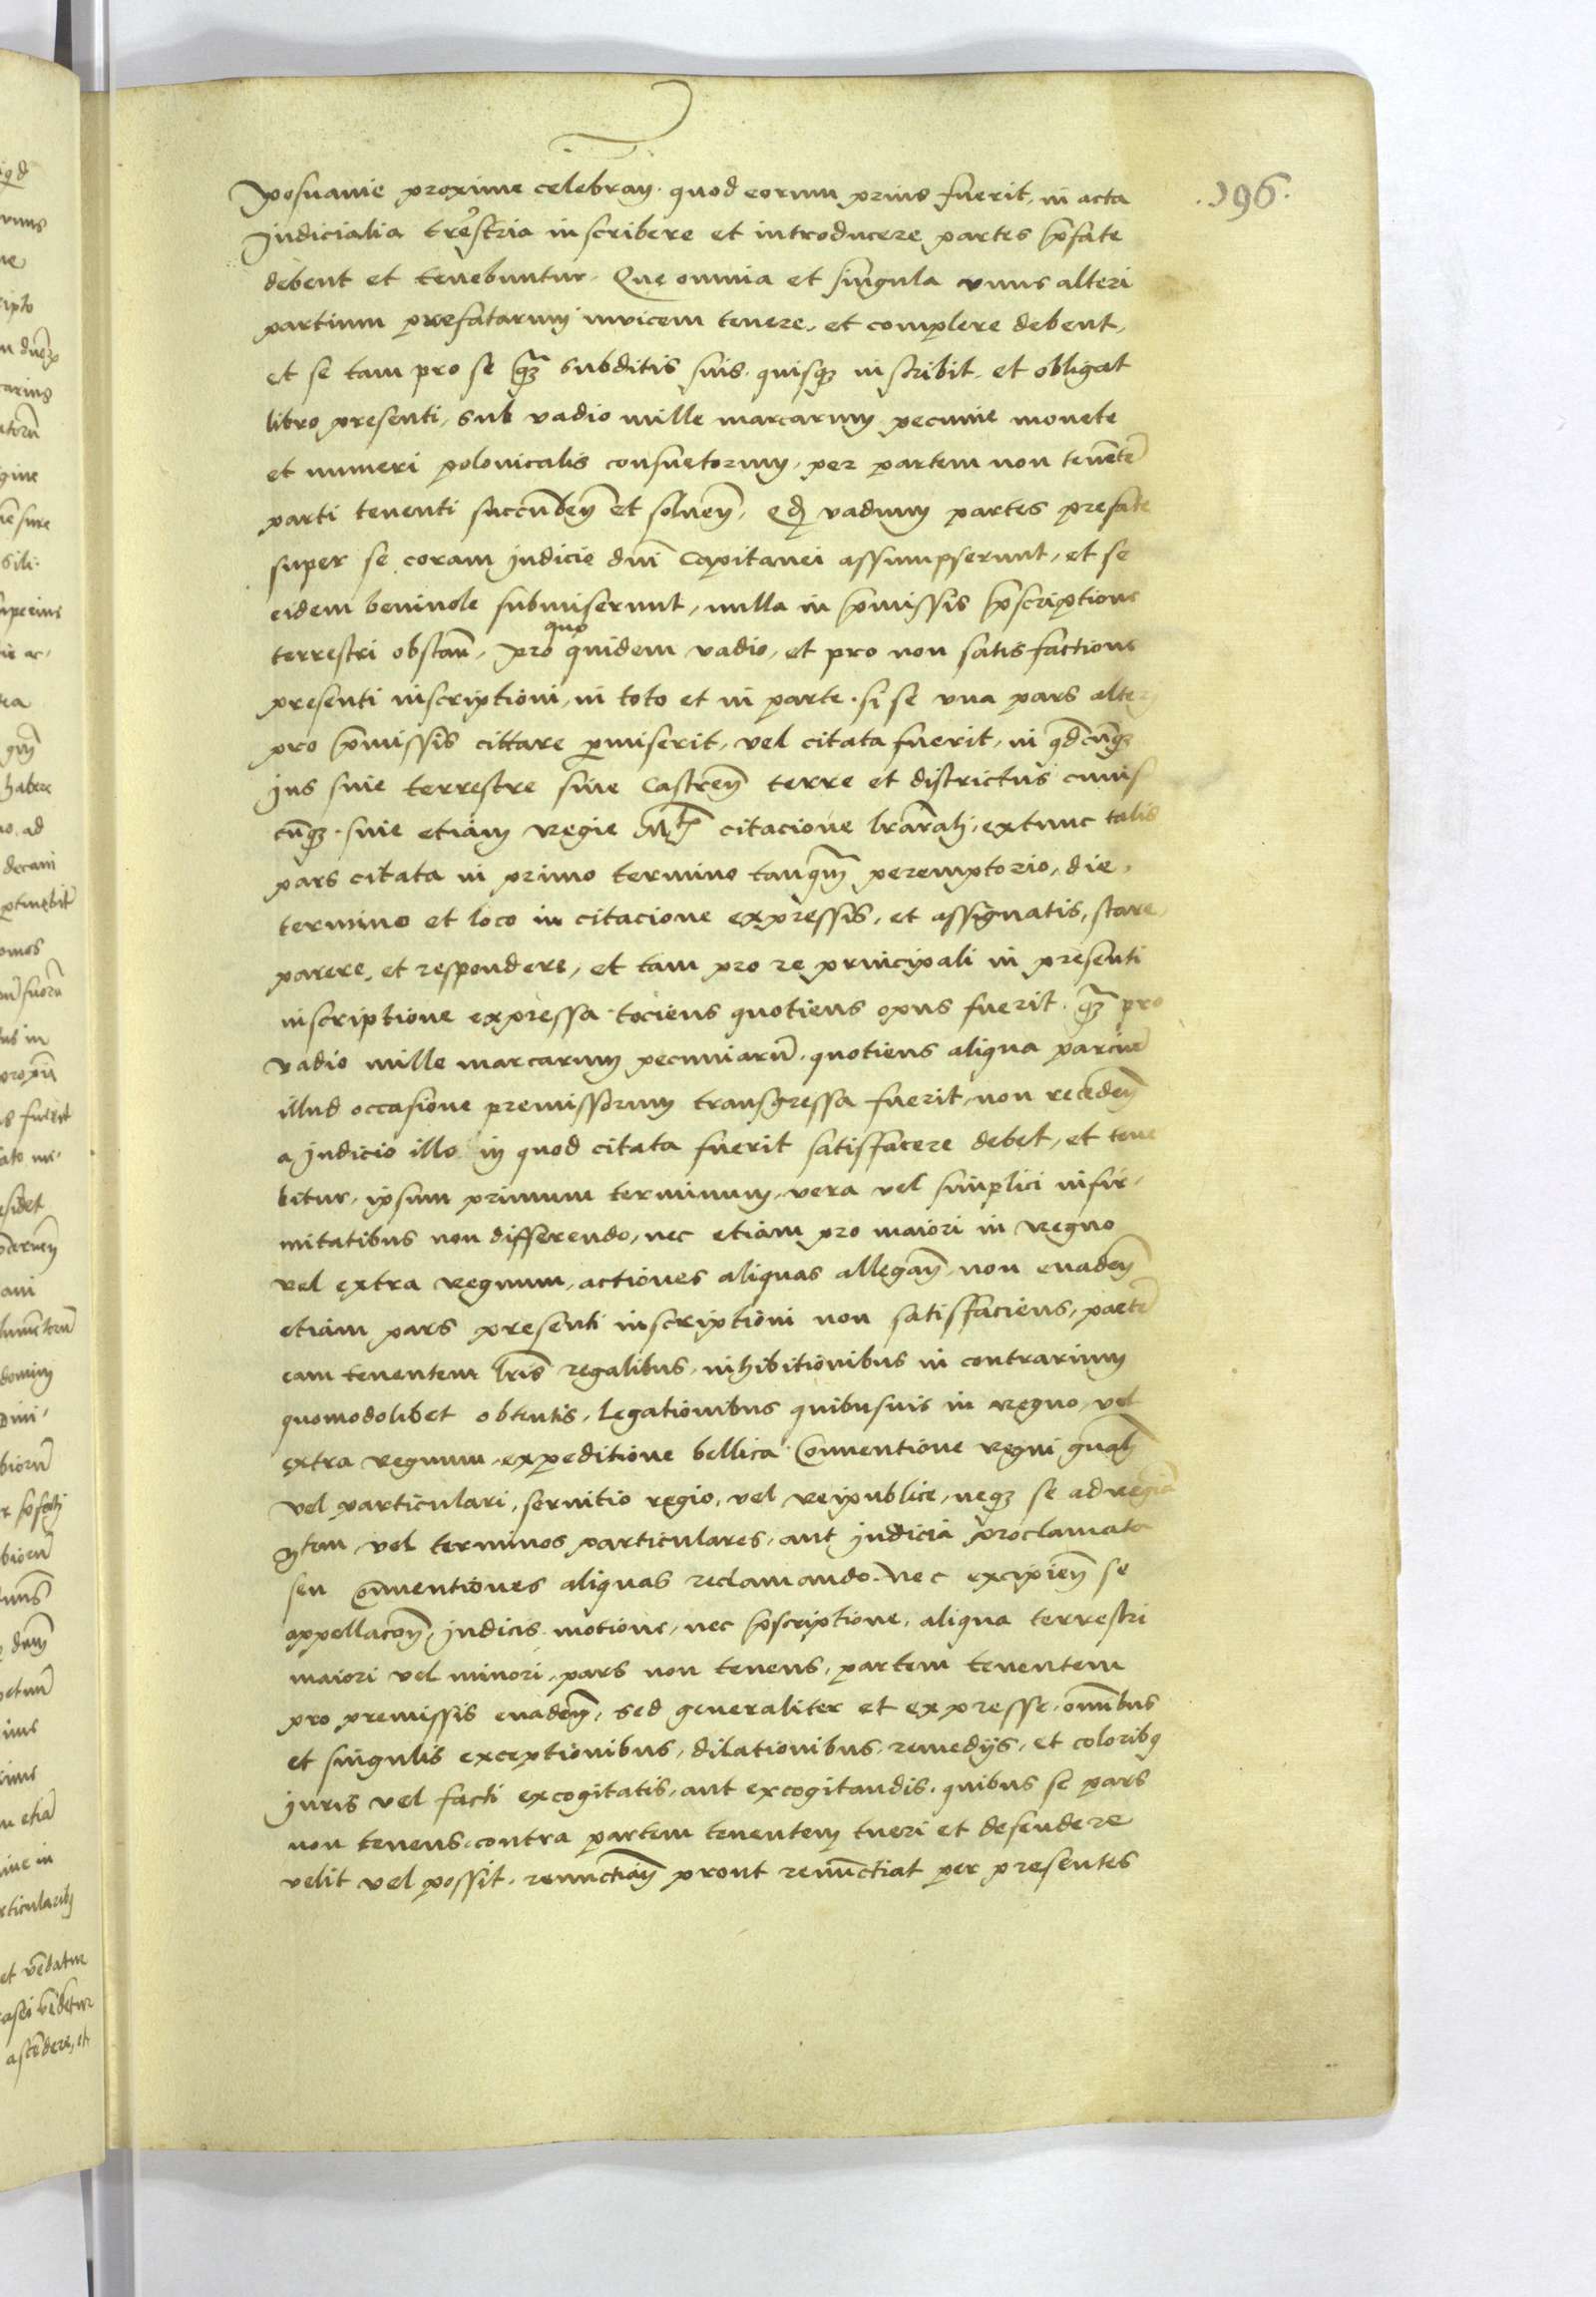 .196.
Posnanie proxime celebran. quod eorum prius fuerit, in acta
Judicialia trestria inscribere et introducere partes pfate
debent et tenebuntur. Que omnia et singula unus alteri
partium prefatarum invicem tenere, et complere debent,
et se tam pro se qz subditis suis. quisqz inscribit. et obligat
libro presenti, sub vadio mille marcarum pecunie monete
et numeri polonicalis consuetorum, per partem non tenete
parti tenenti succuben et soluen, Qd vadium partes prefate
super se coram judicio dni Capitanei assumpserunt, et se
eidem beniuole submiserunt, nulla in pmissis pscriptione
terrestri obstan. Pro quo quidem vadio, et pro non satisfactione
presenti inscriptioni, in toto et in parte. si se una pars alteri
pro pmissis cittare pmiserit, vel citata fuerit, in qdcuqz
jus siue terrestre siue Castren terre et districtus cuius
cuqz. siue etiam Regie Mtis citacione lrarali, extunc talis
pars citata in primo termino tanqm peremptorio, die,
termino et loco in citacione expressis, et assignatis, stare,
parere, et respondere, et tam pro re principali in presenti
inscriptione expressa. tociens quotiens opus fuerit. qz pro
vadio mille marcarum pecuniaru. quotiens aliqua parciu
illud occasione premissorum transgressa fuerit, non receden
a judicio illo in quod citata fuerit satisfacere debet, et tene
bitur, ipsum primum terminum, vera vel simplici infir-
mitatibus non differendo, nec etiam pro maiori in regno
vel extra regnum, actiones aliquas allegan, non euaden
etiam pars presenti inscriptioni non satisfaciens, parte
eam tenentem lris regalibus, inhibitionibus in contrarium
quomodolibet obtentis, legationibus quibusuis in regno, vel
extra regnum, expeditione bellica. Conuentione regni gnali
vel particulari, seruitio regio, vel reipublice, neqz se ad regia
Mtem, vel terminos particulares, aut judicia proclamata
seu conuentiones aliquas reclamando. Nec excipien se
appellacon, judicis motione, nec pscriptione, aliqua terrestri
maiori vel minori, pars non tenens, partem tenentem
pro premissis euaden, sed generaliter et expresse, omibus
et singulis exceptionibus, dilationibus, remedijs, et coloribq
juris vel facti excogitatis, aut excogitandis, quibus se pars
non tenens contra partem tenentem tueri et defendere
velit vel possit. renunctian prout renunctiat per presentes